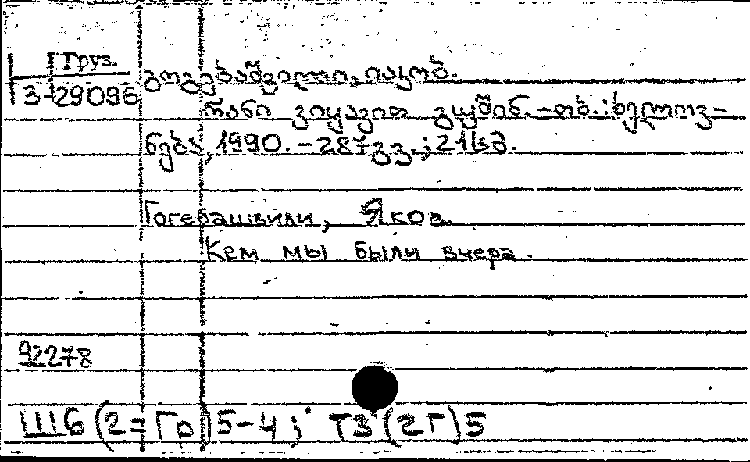 Груз.
3-29096
გოგებაშვილი, იაკობ.
რანი ვიყავით გუშინ. - თბ. : ხელოვ-
ნება, 1990. - 287გვ. ; 21სმ.
Гогебашвили, Яков.
Кем мы были вчера.
92278
Ш6(2=Гр)5-4; Т3(2Г)5